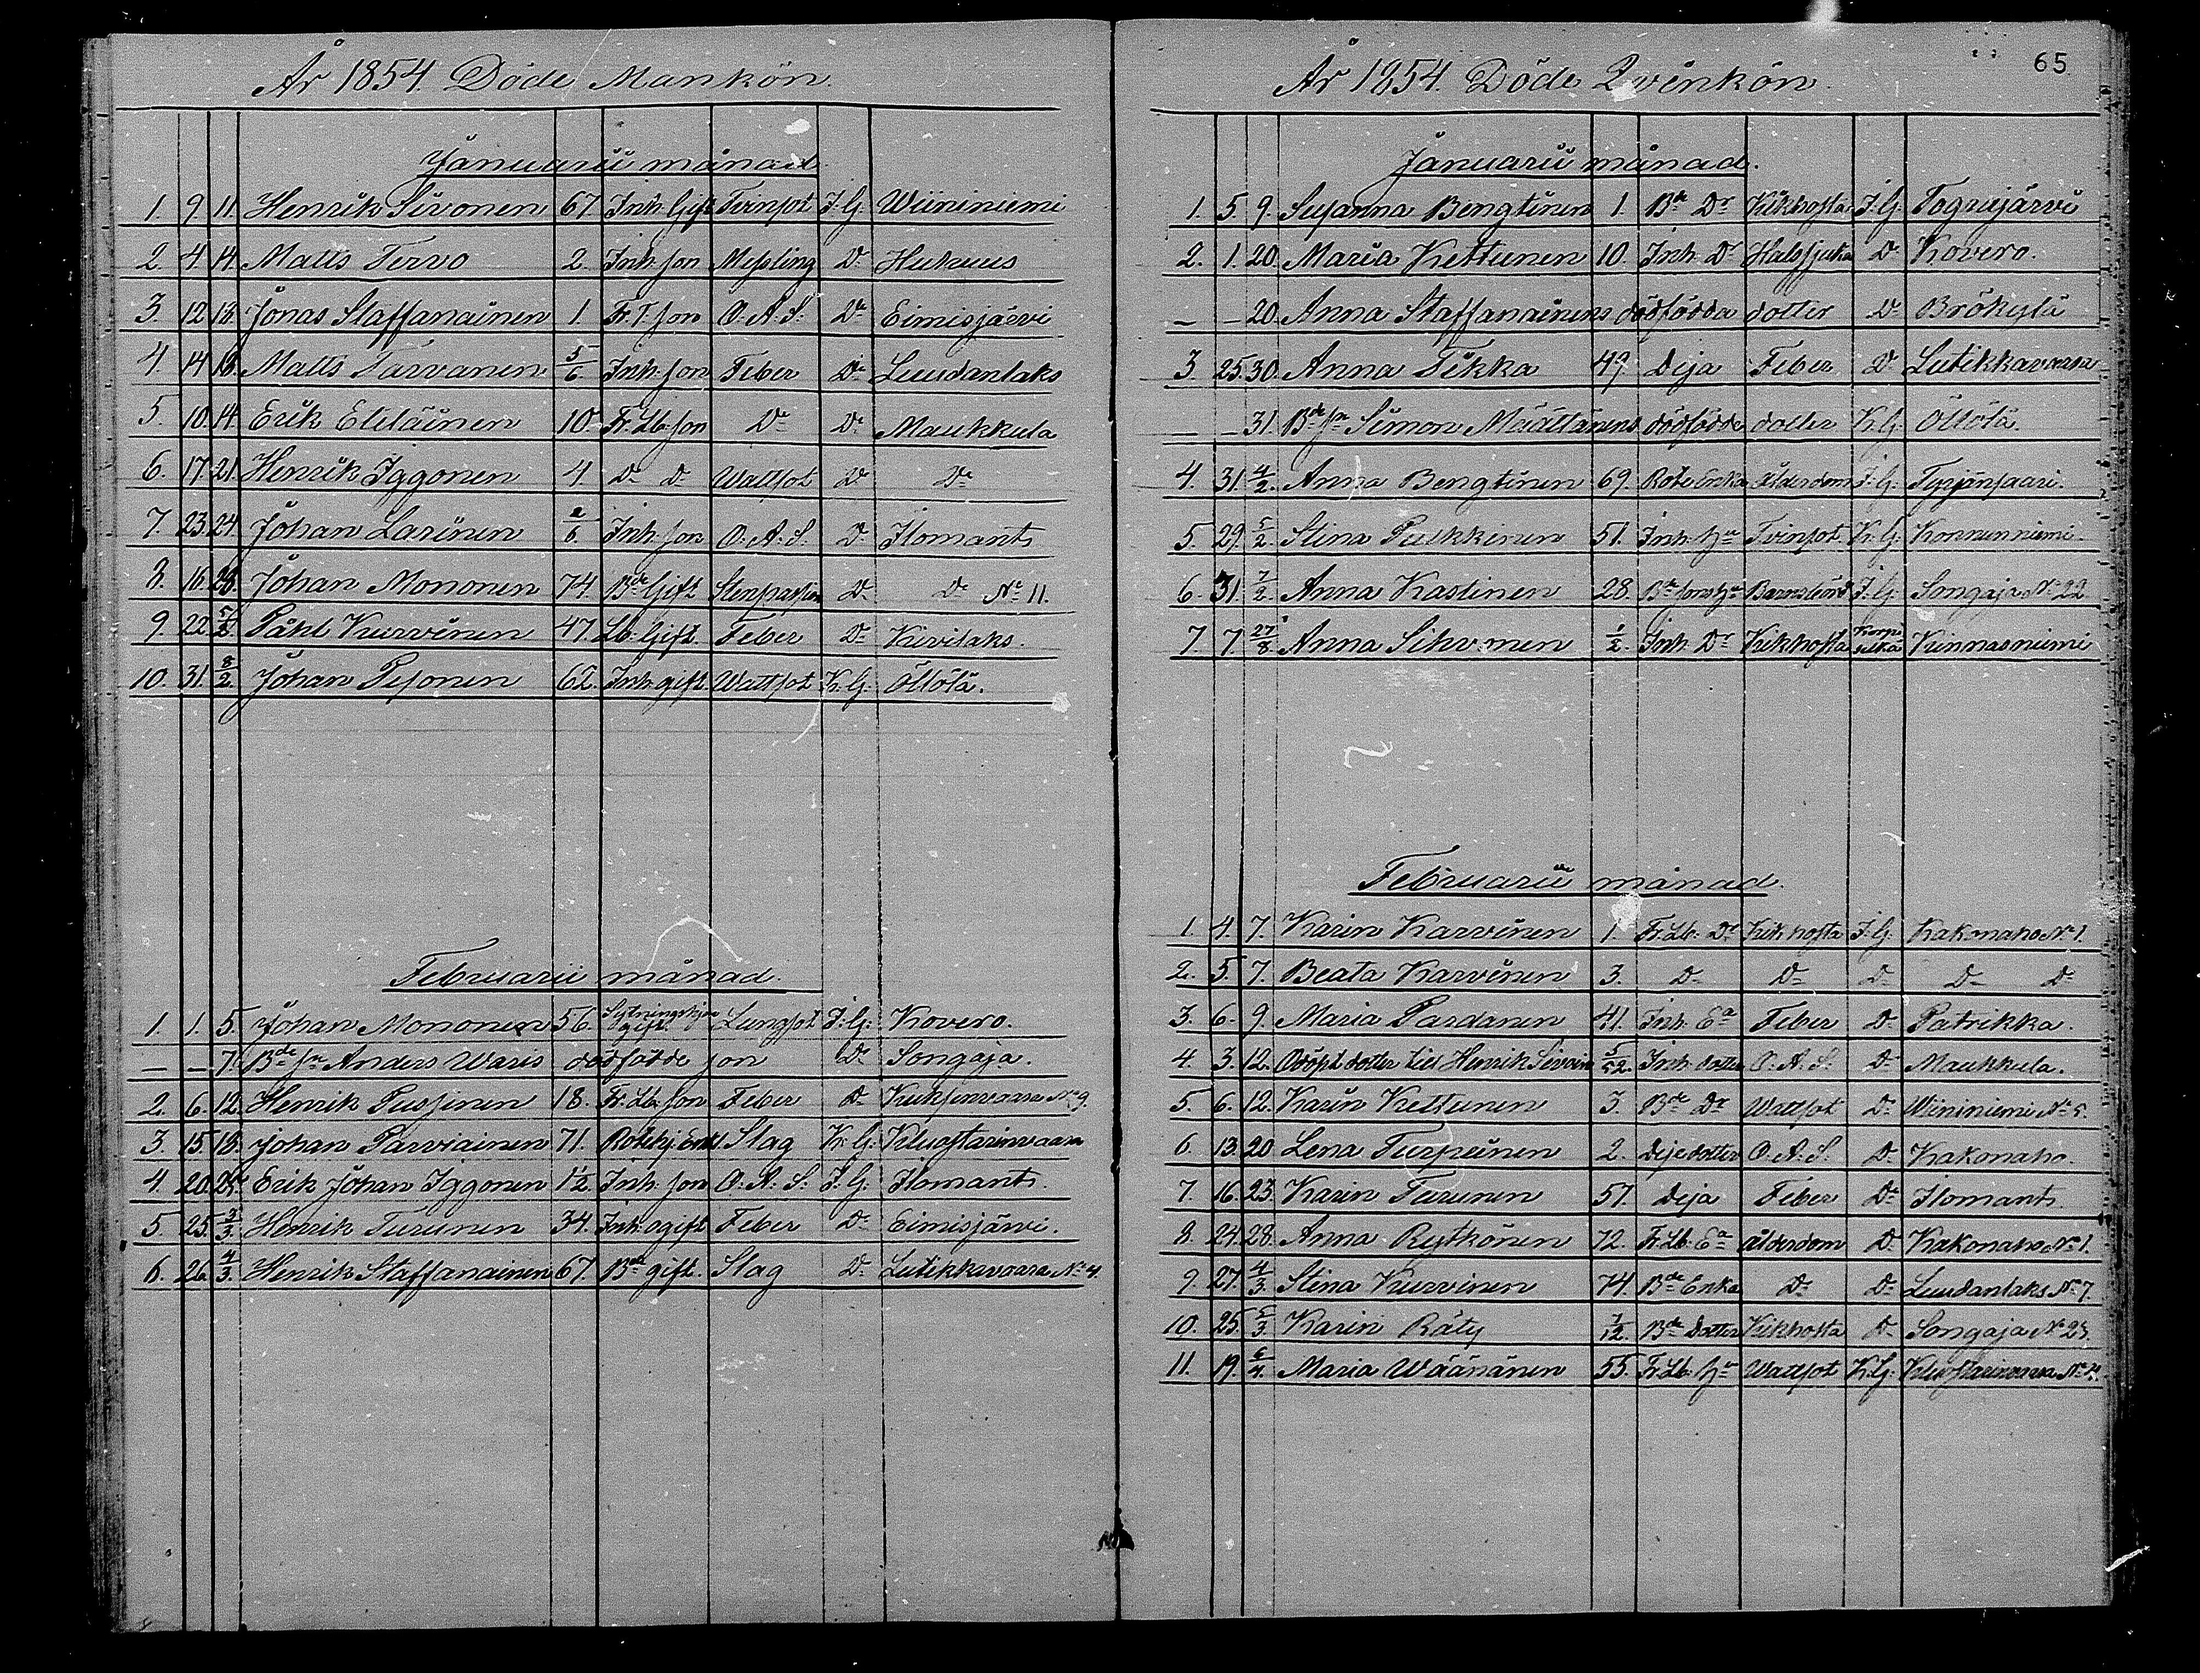 År 1854. Döde Mankön.
Januarii månad.
1. 9. 11. Henrik Sivonen 67. Inh. Gift Tvinsot I. G. Wiininiemi
2. 4. 14. Matts Tervo 2. Inh. son Messling Do Hukuus
3. 12. 13. Jonas Staffanainen 1 Fr. T. son O. A. S. Do Eimisjärvi
4. 14. 18. Matts Tarvanen 5/6 Inh. son Feber Do Luudanlaks
5. 10. 14. Erik Eteläinen 10 Fr. Lb. son Do Do Maukkula
6. 17. 21. Henrik Iggonen 4 Do Do Wattsot Do Do
7. 23. 24. Johan Larinen 2/6 Inh. son O. A. S. Do Ilomants
8. 16. 28. Johan Mononen 74. Bde Gift Stenpassion Do Do No 11.
9. 22. 5/2. Påhl Kurvinen 47. Lb. Gift Feber Do Kivilaks.
10. 31. 8/2. Johan Pesonen 62. Inh. gift Wattsot K. G. Öllölä.
Februarii månad.
1. 1. 5. Johan Mononen 56. Sytningshjon gift Lungsot I. G. Kovero.
— — 7. Bde sn Anders Waris dödfödde son Do Songaja.
2. 6. 12. Henrik Pussinen 18. Fr. Lb. son Feber Do Kuuksenvaara No 9.
3. 15. 18. Johan Parviainen 71. Rotehj. Enkl. Slag K. G. Kluoftarinvaara
4. 20. Erik Johan Iggonen 1/2. Inh. son O. A. S. I. G. Ilomants.
5. 25. 3/3. Henrik Turunen 34. Inh. ogift Feber Do Eimisjärvi.
6. 26. 4/3. Henrik Staffanainen 67. Bde gift. Slag Do Lutikkavaara No 4.
65
År 1854. Döde Qvinkön.
Januarii månad.
1. 5. 9. Susanna Bengtinen 1. Bde Dr Kikhosta I. G. Tognijärvi
2. 1. 20. Maria Kettunen 10. Inh. Dr Halssjuka Do Kovero.
— — 20. Anna Staffanainens dödfödda dotter Do Brökylä
3. 25. 30. Anna Tikka 49. Deja Feber Do Lutikkavaara
— — 31. Bde sn Simon Määttänens dödfödde dotter K. G. Öllölä.
4. 31. 4/2. Anna Bengtinen 69. Rote Enka ålderdom I. G. Tyrjänsaari.
5. 29. 5/2. Stina Pulkkinen 51. Inh. hu Tvinsot K. G. Konnunniemi.
6. 31. 7/2. Anna Kastinen 28. Bde sons hu Barnsbörd I. G. Songaja No 22
7. 7. 27/8 Anna Sihvonen 1/2. Inh. Dr Kikhosta Korpiselkä Kinnasniemi
Februarii månad.
1. 4. 7. Karin Karvinen 1. Fr. Lb. Dr Kikhosta I. G. Kakonaho No 1.
2. 5. 7. Beata Karvinen 3. Do Do Do Do Do
3. 6. 9. Maria Pardanen 41. Inh. Ea Feber Do Patrikka.
4. 3. 12. Odöpt dotter till Henrik Sivoin 5/52. Inh. dotter O. A. S. Do Maukkula.
5. 6. 12. Karin Kettunen 3. Bde Dr Wattsot Do Wiininiemi No 5.
6. 13. 20. Lena Turpeinen 2. Deje dotter O. A. S. Do Kakonaho.
7. 16. 23. Karin Turunen 57. Deja Feber Do Ilomants.
8. 24. 28. Anna Rytkönen 72. Fr. Lb. Ea ålderdom Do Kakonaho No 1.
9. 27. 4/3. Stina Kurvinen 74. Bde Enka Do Do Luudanlaks No 7.
10. 25. 5/3. Karin Räty 7/12. Bde Dotter Kikhosta Do Songaja No 23.
11. 19. 6/4. Maria Wäänänen 55. Fr. Lb. hu Wattsot K. G. Kluoftarinvaara